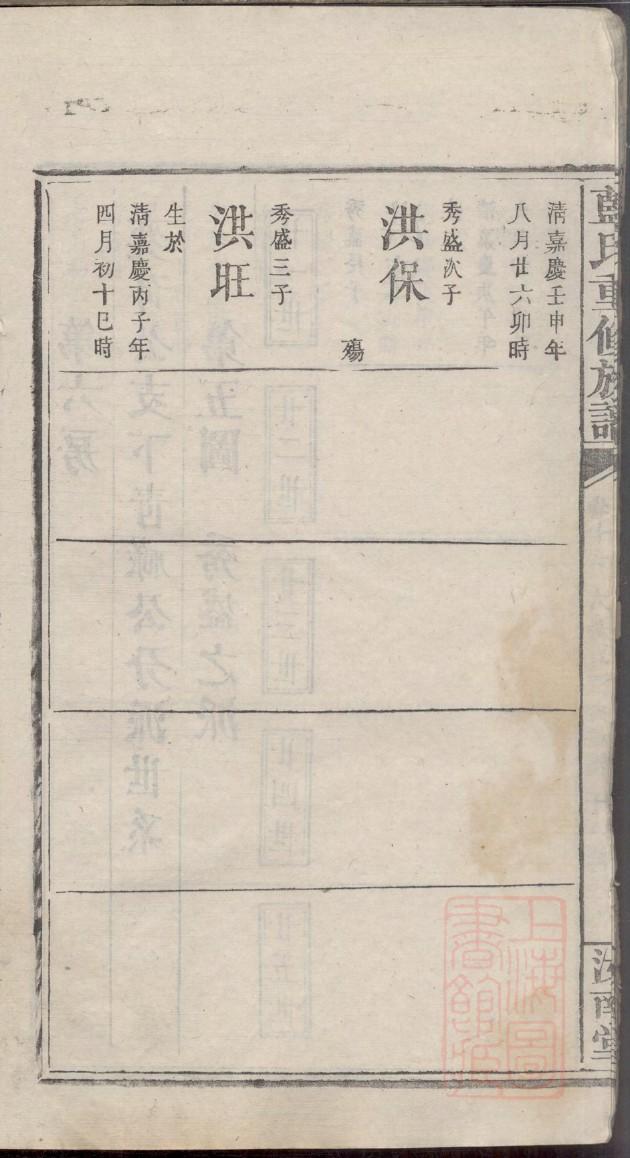 藍氏重修族譜
汝南堂
清嘉慶壬申年
八月廿六卯時
秀盛次子
洪保
殤
秀盛三子
洪旺
生於
清嘉慶丙子年
四月初十巳時
上海圖
書館藏